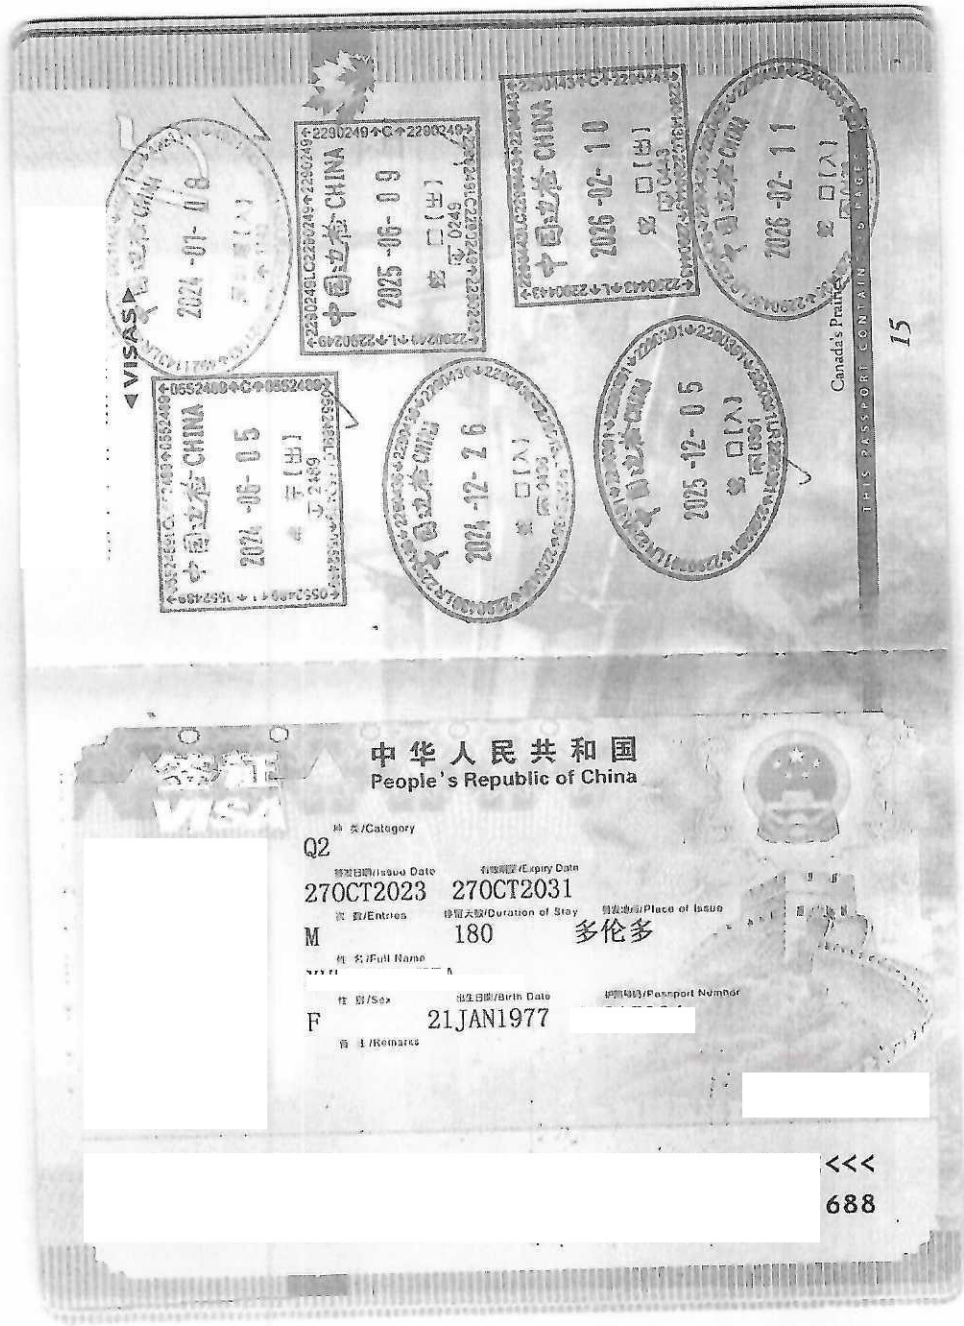 ◀ VISAS ▶
中国边检 CHINA
2024-01-08
[入]
←2290249←C←2290249→
中国边检 CHINA
2025-06-09
口[出]
0249
中国边检 CHINA
2026-02-10
口[出]
中国边检 CHINA
2026-02-11
口[入]
中国边检 CHINA
2024-06-05
[出]
2489
中国边检 CHINA
2024-12-26
口[入]
中国边检 CHINA
2025-12-05
口[入]
0391
Canada's Prairies
THIS PASSPORT CONTAINS PAGES
15
签证
VISA
中华人民共和国
People's Republic of China
种 类/Category
Q2
签发日期/Issue Date 有效期至/Expiry Date
27OCT2023 27OCT2031
次 数/Entries 停留天数/Duration of Stay 签发地点/Place of Issue
M 180 多伦多
姓 名/Full Name
性 别/Sex 出生日期/Birth Date 护照号码/Passport Number
F 21JAN1977
备 注/Remarks
<<<
688